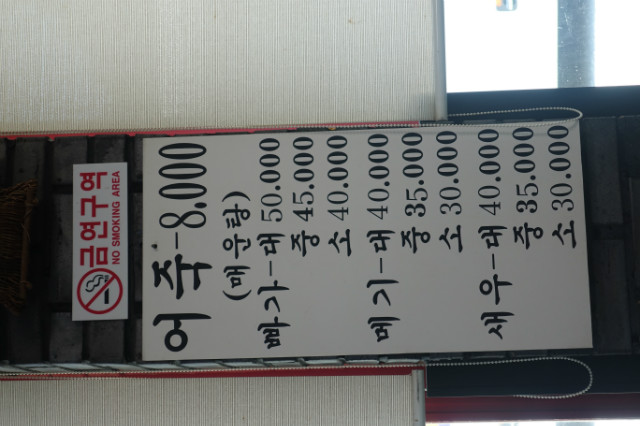 금연구역
NO SMOKING AREA
어죽-8.000
(매운탕)
빠가-대 50.000
중 45.000
소 40.000
메기-대 40.000
중 35.000
소 30.000
새우-대 40.000
중 35.000
소 30.000